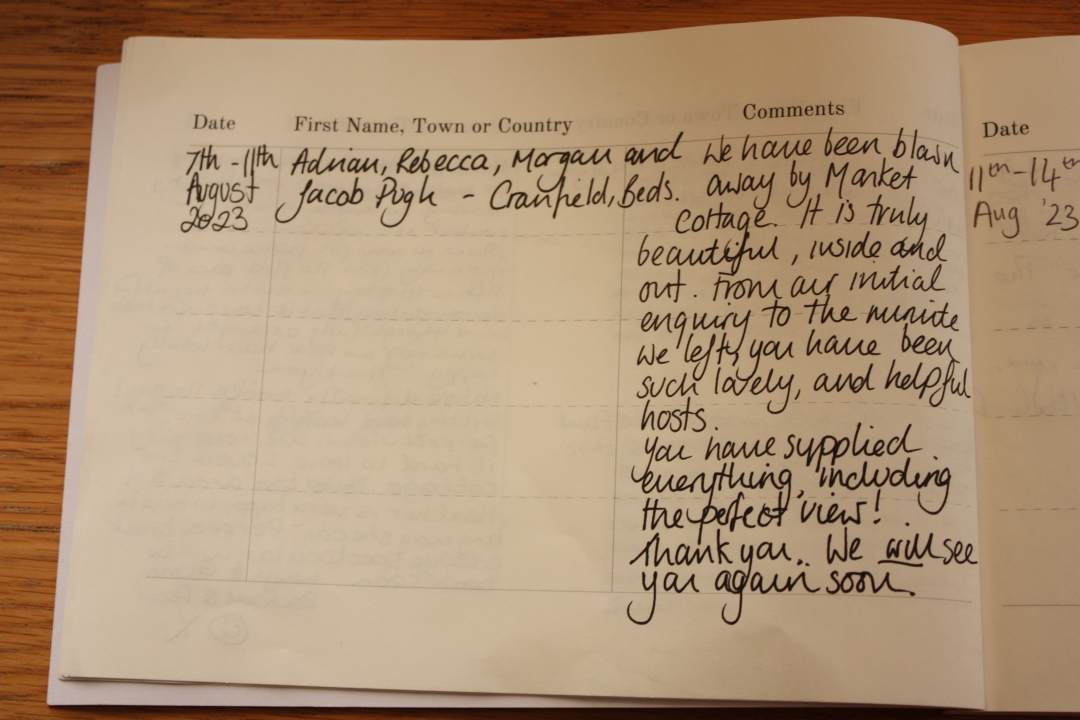 Date First Name, Town or Country Comments
7th - 11th August 2023
Adrian, Rebecca, Morgan and
Jacob Pugh - Cranfield, Beds.
We have been blown
away by Market
Cottage. It is truly
beautiful, inside and
out. From our initial
enquiry to the minute
we left, you have been
such lovely, and helpful
hosts.
You have supplied
everything, including
the perfect view!
Thank you.. We will see
you again soon.
Date
11th - 14th
Aug '23